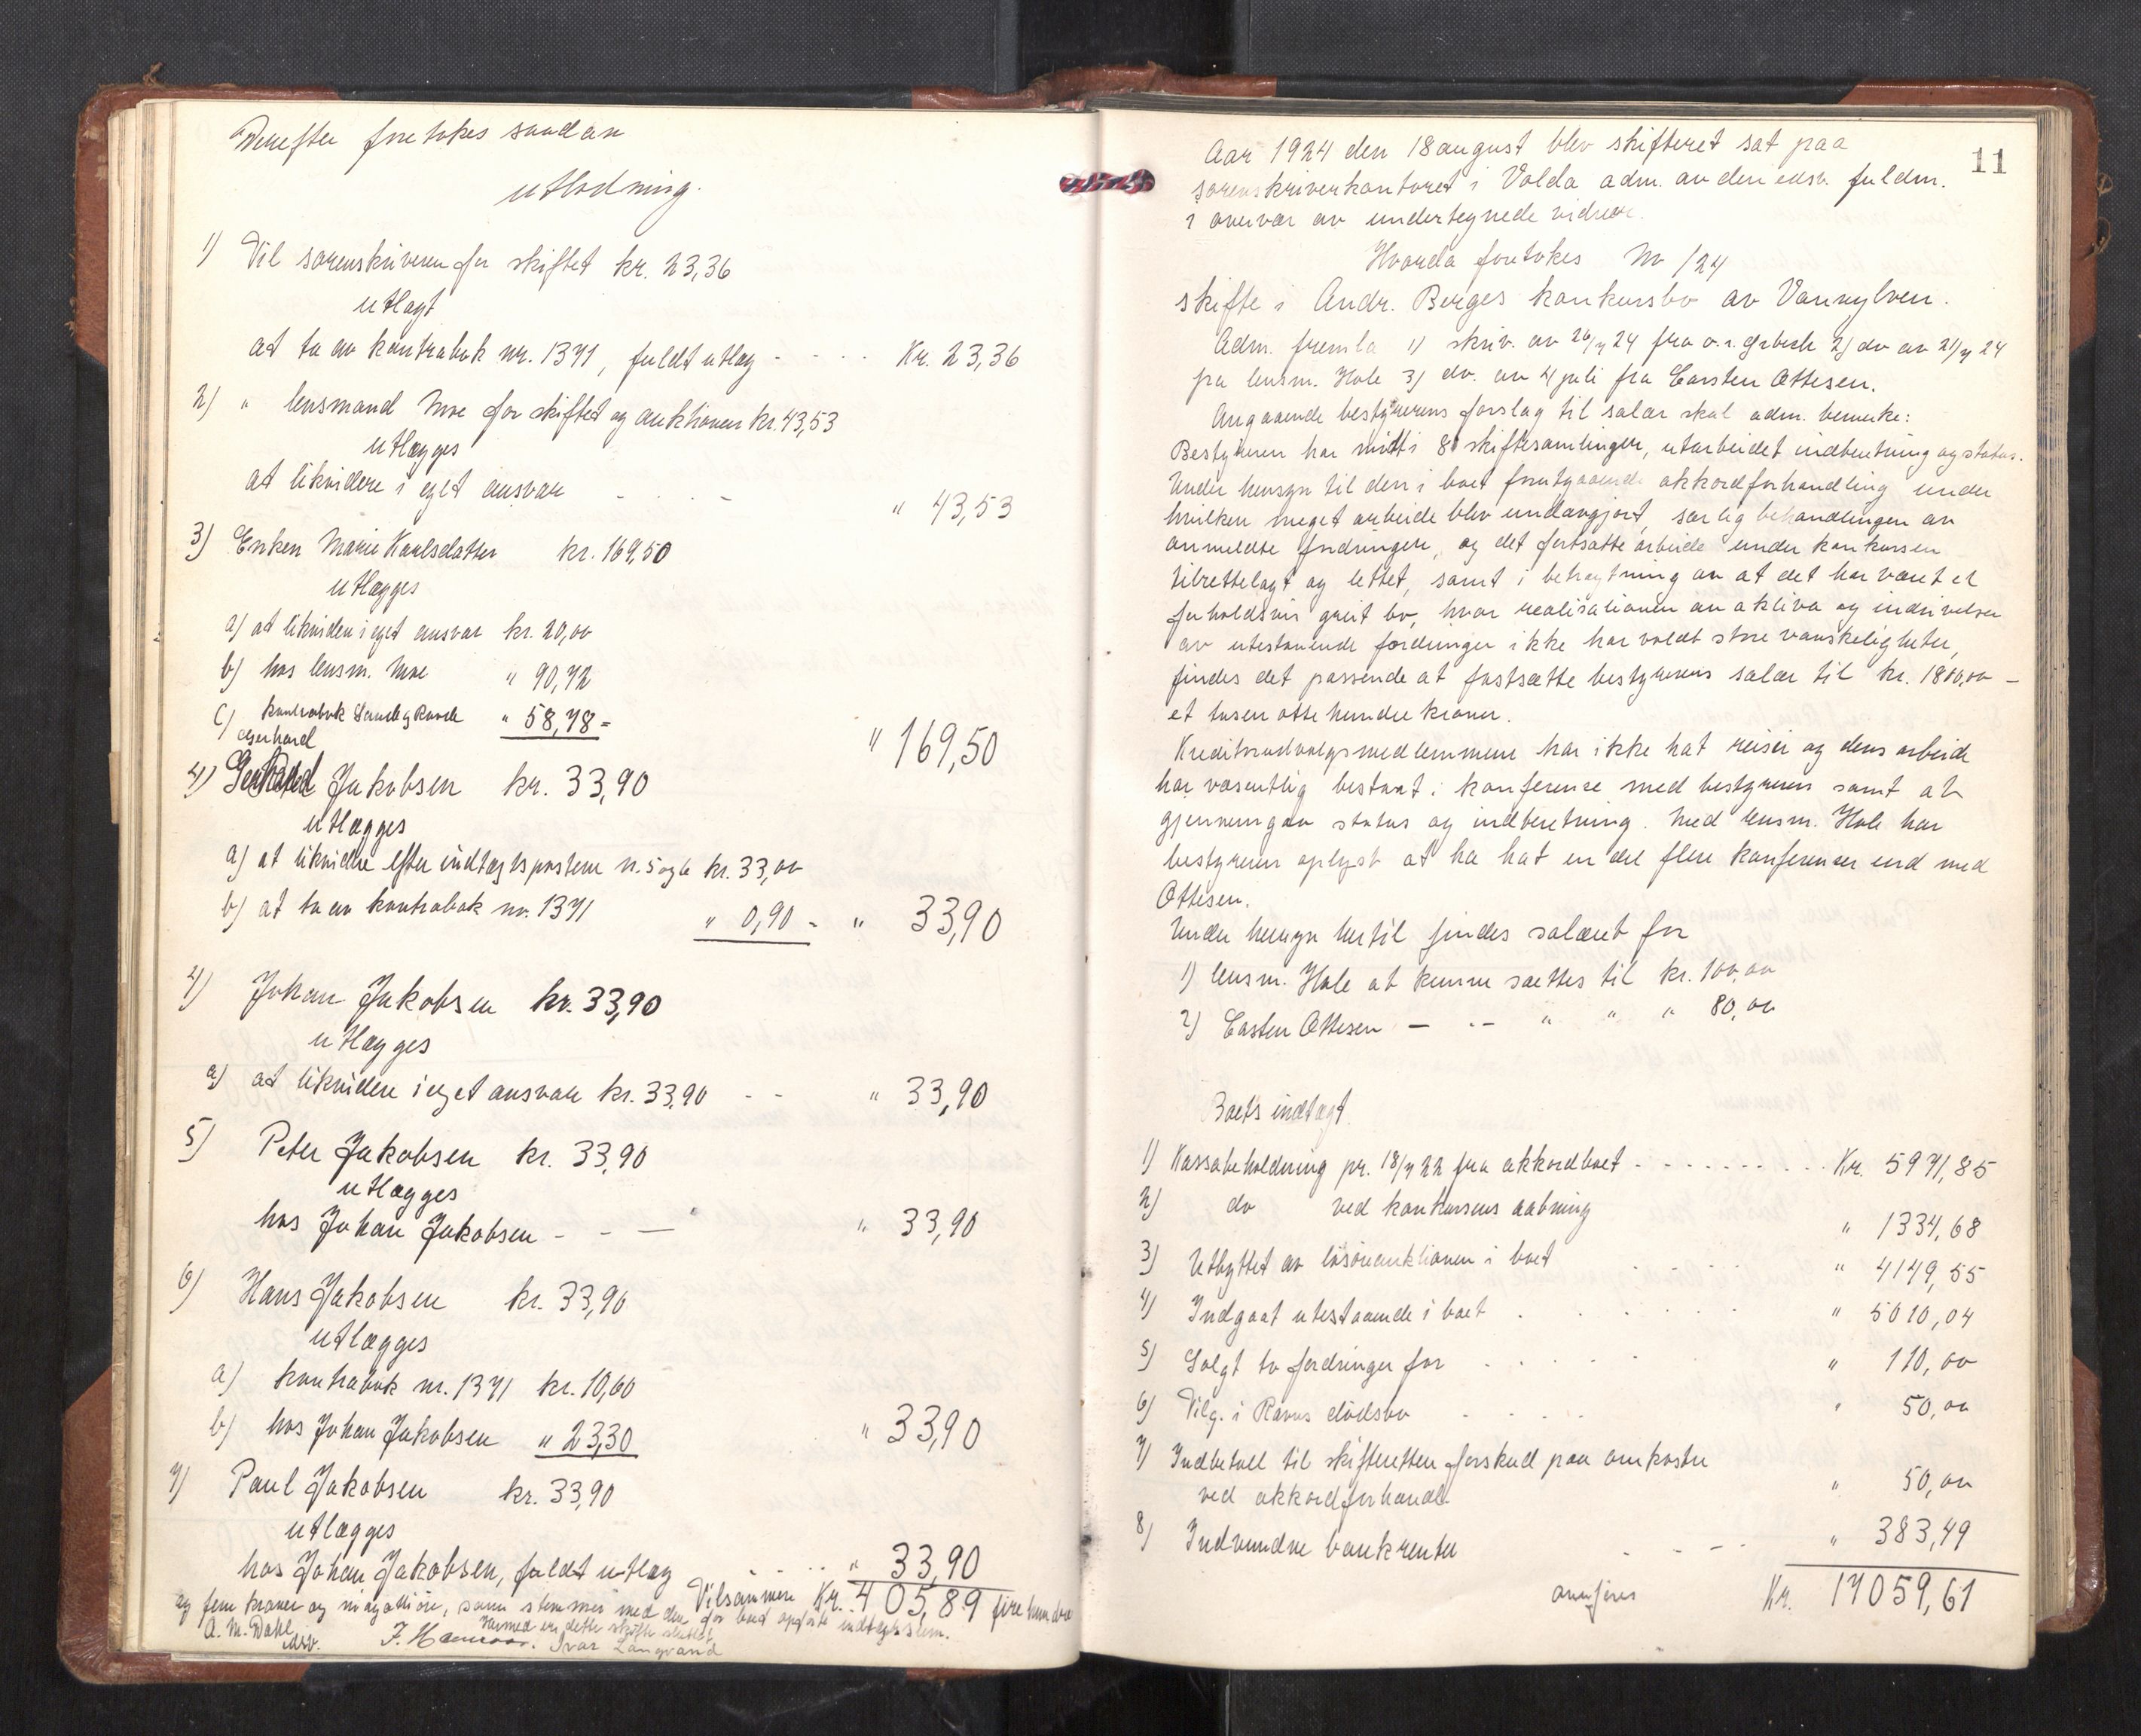 Derefter foretokes saadan
utlodning.
1) Til sorenskriveren for skiftet kr. 23,36
utlagt
at ta av kontrabok nr. 1371, fuldt utlæg - - - - Kr. 23,36
2) " lensmand Moe for skiftet og auktionen kr. 43,53
utlægges
at likvidere i eget ansvar - - - " 43,53
3) Enken Marie Karlsdatter kr. 169,50
utlægges
a) at likvidere i eget ansvar kr. 20,00
b) hos lensm. Moe " 90,72
c) kontrabok Sande g " 58,78 =
" 169,50
Gerhard
4) Jakobsen kr. 33,90
utlægges
a) at likvidere efter indtægtspostene n. 5 og 6 kr. 33,00
b) at ta av kontrabok nr. 1371 " 0,90 - " 33,90
4) Johan Jakobsen kr. 33,90
utlægges
a) at likvidere i eget ansvar kr. 33,90 - - " 33,90
5) Peter Jakobsen kr. 33,90
utlægges
hos Johan Jakobsen - - — " 33,90
6) Hans Jakobsen kr. 33,90
utlægges
a) kontrabok nr. 1371 kr. 10,60
b) hos Johan Jakobsen " 23,30
" 33,90
7) Paul Jakobsen kr. 33,90
utlægges
hos Johan Jakobsen, fuldt utlæg " 33,90
Tilsammen Kr. 405,89 fire hundre
og fem kroner og niogottiøre, som stemmer med den for boet opførte indtægtssum.
Hermed er dette skifte sluttet.
A. M. Dahl
edsv. Ivar Langvand
11
Aar 1924 den 18 august blev skifteret sat paa
sorenskriverkontoret i Volda adm. av den edsv. fuldm.
i overvær av undertegnede vidner.
Hvorda foretokes No /24
skifte i Andr. Berges konkursbo av Vannylven.
Adm. fremla 1) skriv. av 26/7 24 fra o.r. 2) do av 21/7 24
fra lensm. Hole 3) do. av 4 juli fra Carsten Ottesen.
Angaaende bestyrerens forslag til salær skal adm. bemerke:
Bestyreren har møtt i 8 skiftesamlinger, utarbeidet indberetning og status.
Under hensyn til den i boet forutgaaende akkordforhandling under
hvilken meget arbeide blev undavgjort, særlig behandlingen av
anmeldte fordringer, og det fortsatte arbeide under konkursen
tilrettelagt og lettet, samt i betragtning av at det har været et
forholdsvis greit bo, hvor realisationen av aktiva og indrivelse
av utestaaende fordringer ikke har voldt store vanskeligheter,
findes det passende at fastsætte bestyrerens salær til kr. 1800,00 –
et tusen otte hundre kroner.
Kreditorutvalgsmedlemmene har ikke hat reiser og deres arbeide
har væsentlig bestaat i konferense med bestyreren samt at
gjennemgaa status og indberetning. Med lensm. Hole har
bestyreren oplyst at ha hat en del flere konferenser end med
Ottesen.
Under hensyn hertil findes salæret for
1) lensm. Hole at kunne sættes til kr. 100,00
2) Carsten Ottesen — -- " " " 80,00
Boets indtægt.
1) Kassabeholdning pr. 18/7 22 fra akkordboet - - - - - Kr. 5971,85
2) do ved konkursens aabning " 1334,68
3) Utbyttet av løsøreauktionen i boet - - - - " 4149,55
4) Indgaat utestaaende i boet - - - - " 5010,04
5) Solgt to fordringer for - - - - " 110,00
6) Tilg. i Ravns dødsbo - - - - " 50,00
7) Indbetalt til skifteretten forskud paa omkostn
ved akkordforhandl. " 50,00
8) Indvundne bankrenter - - - - " 383,49
overføres Kr. 17059,61